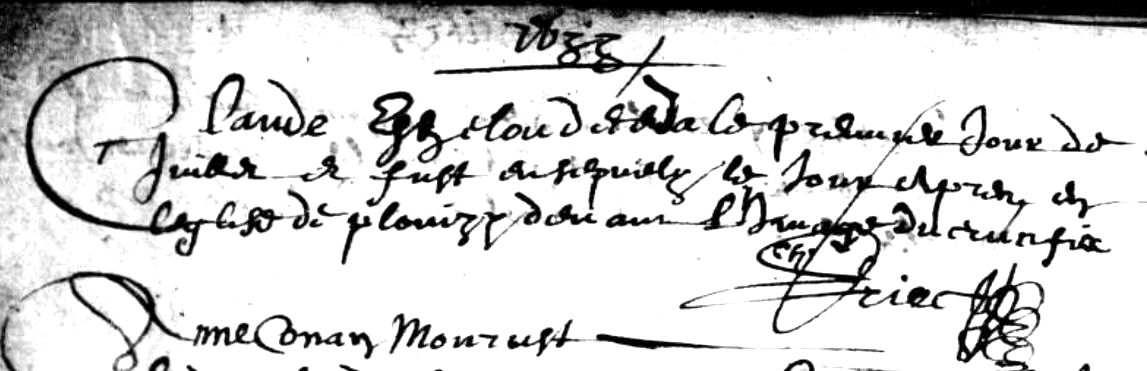 1633
Claude decedda le premier Jour de
Juillet et fust ensepvely le Jour apres en
leglise de plouizy devant l'Image du crucifix
Anne Conan Mourust